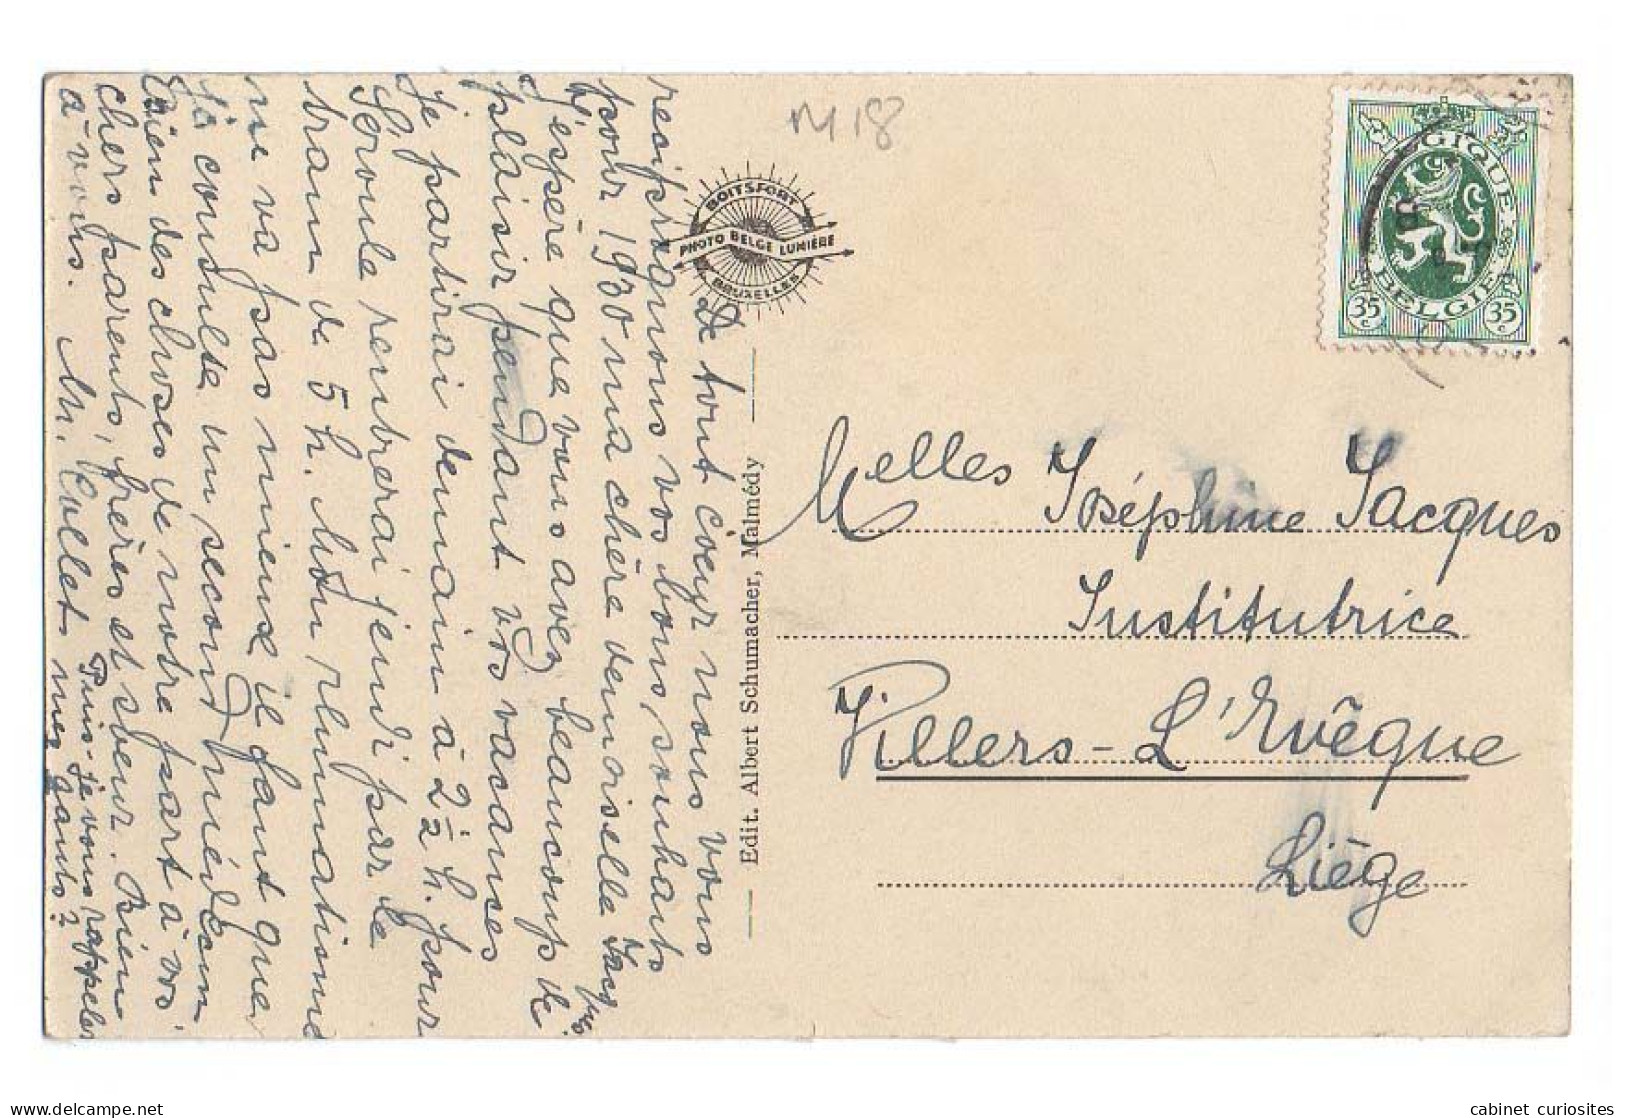 De tout coeur nous vous
reciproquons vos bons souhaits
pour 1930 ma chère demoiselle Jacques.
J'espère que vous avez beaucoup de
plaisir pendant vos vacances
Je partirai demain à 2½ h. pour
rentrerai jeudi par le
train de 5 h. Mon rhumatisme
ne va pas mieux il faut que
je consulte un second médecin
Bien des choses de notre part à vos
chers parents, frères et soeur. Bien
à vous. M. Collet
Puis-je vous rappeler
mes gants?
M18
BOITSFORT
PHOTO BELGE LUMIÈRE
BRUXELLES
Edit. Albert Schumacher, Malmédy
BELGIQUE
BELGIE
35 c 35 c
Melles Joséphine Jacques
Institutrice
Villers-L'Evêque
Liège
cabinet_curiosites